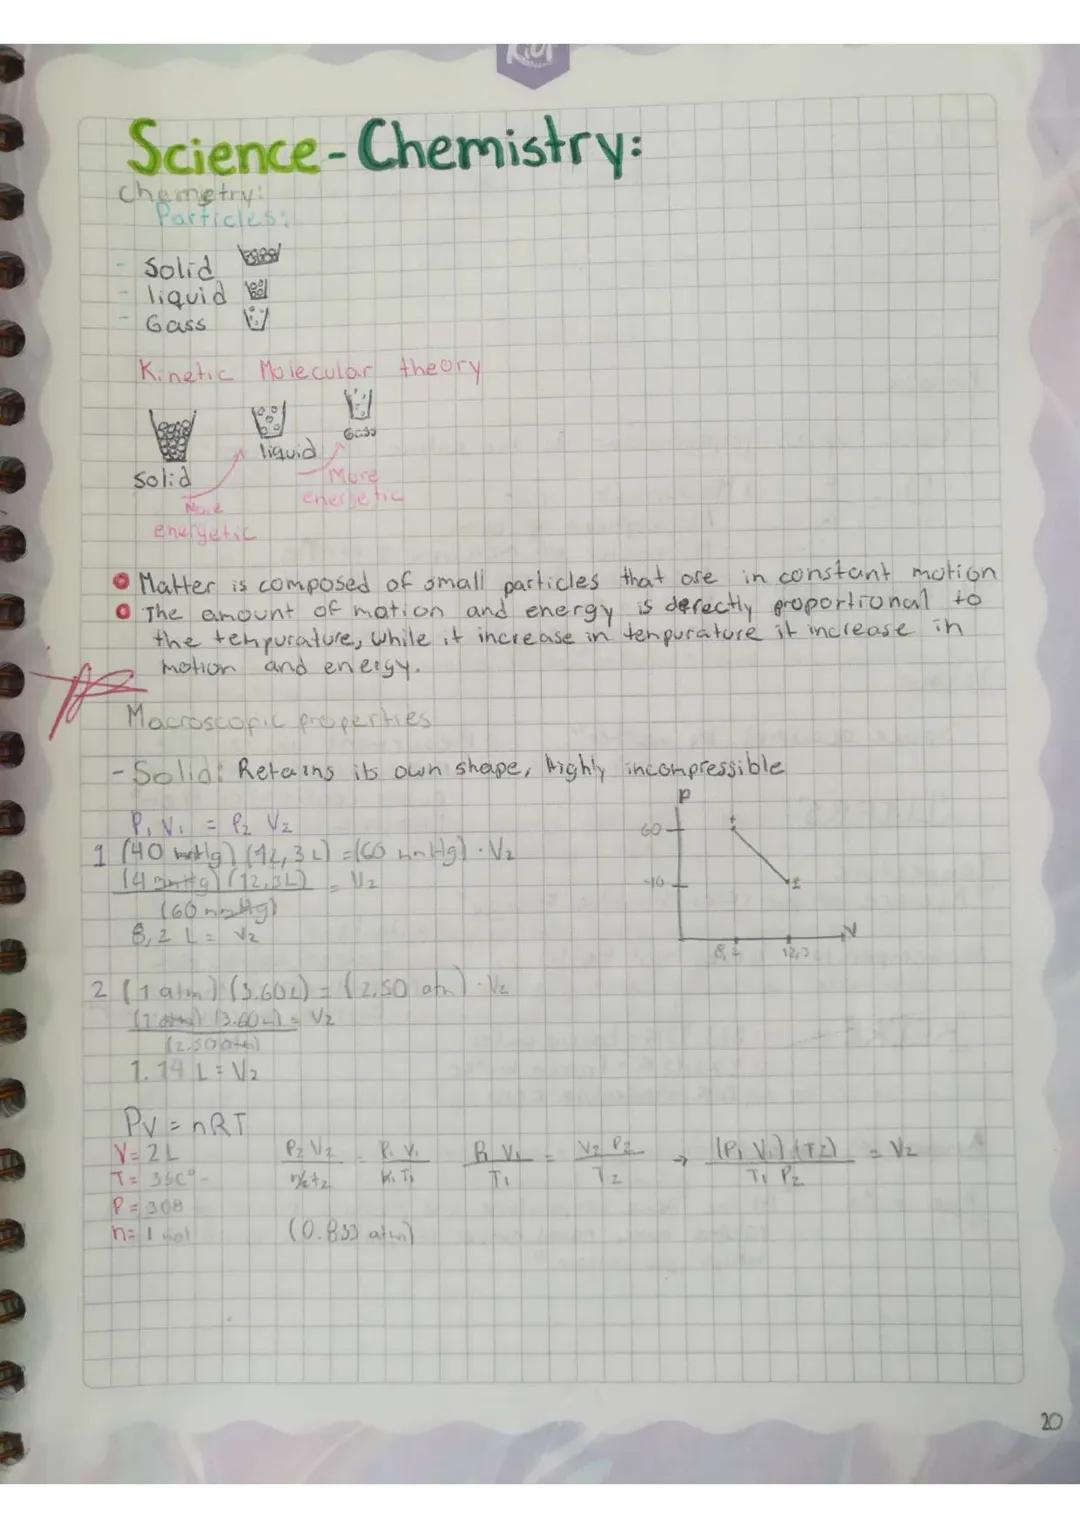 Kiut
Science-Chemistry:
Chemetry:
Particles:
- Solid
- liquid
- Gass
Kinetic Molecular theory
Solid
liquid
Gass
More
energetic
More
energetic
Matter is composed of small particles that are in constant motion
The amount of motion and energy is derectly proportional to
the tenpurature, while it increase in tenpurature it increase in
motion and energy.
Macroscopic properties
- Solid: Retains its own shape, highly incompressible
P₁ V₁ = P₂ V₂
1 (40 mmHg) (12,3 L) = (60 mmHg) · V₂
(4 mmHg) (12,3L) = V₂
(60 mmHg)
8,2 L = V₂
P
60
40
8,2
12,3
V
2 (1 atm) (3.60L) = (2.50 atm) · V₂
(1 atm) (3.60 L) = V₂
(2.50 atm)
1.14 L = V₂
PV = nRT
V = 2 L
T = 35C°-
P = 308
n = 1 mol
P₂ V₂ = P₁ V₁
P₁ V₁ = V₂ P₂
T₁ T₂
→ (P₁ V₁) (T₂) = V₂
T₁ P₂
(0.833 atm)
20